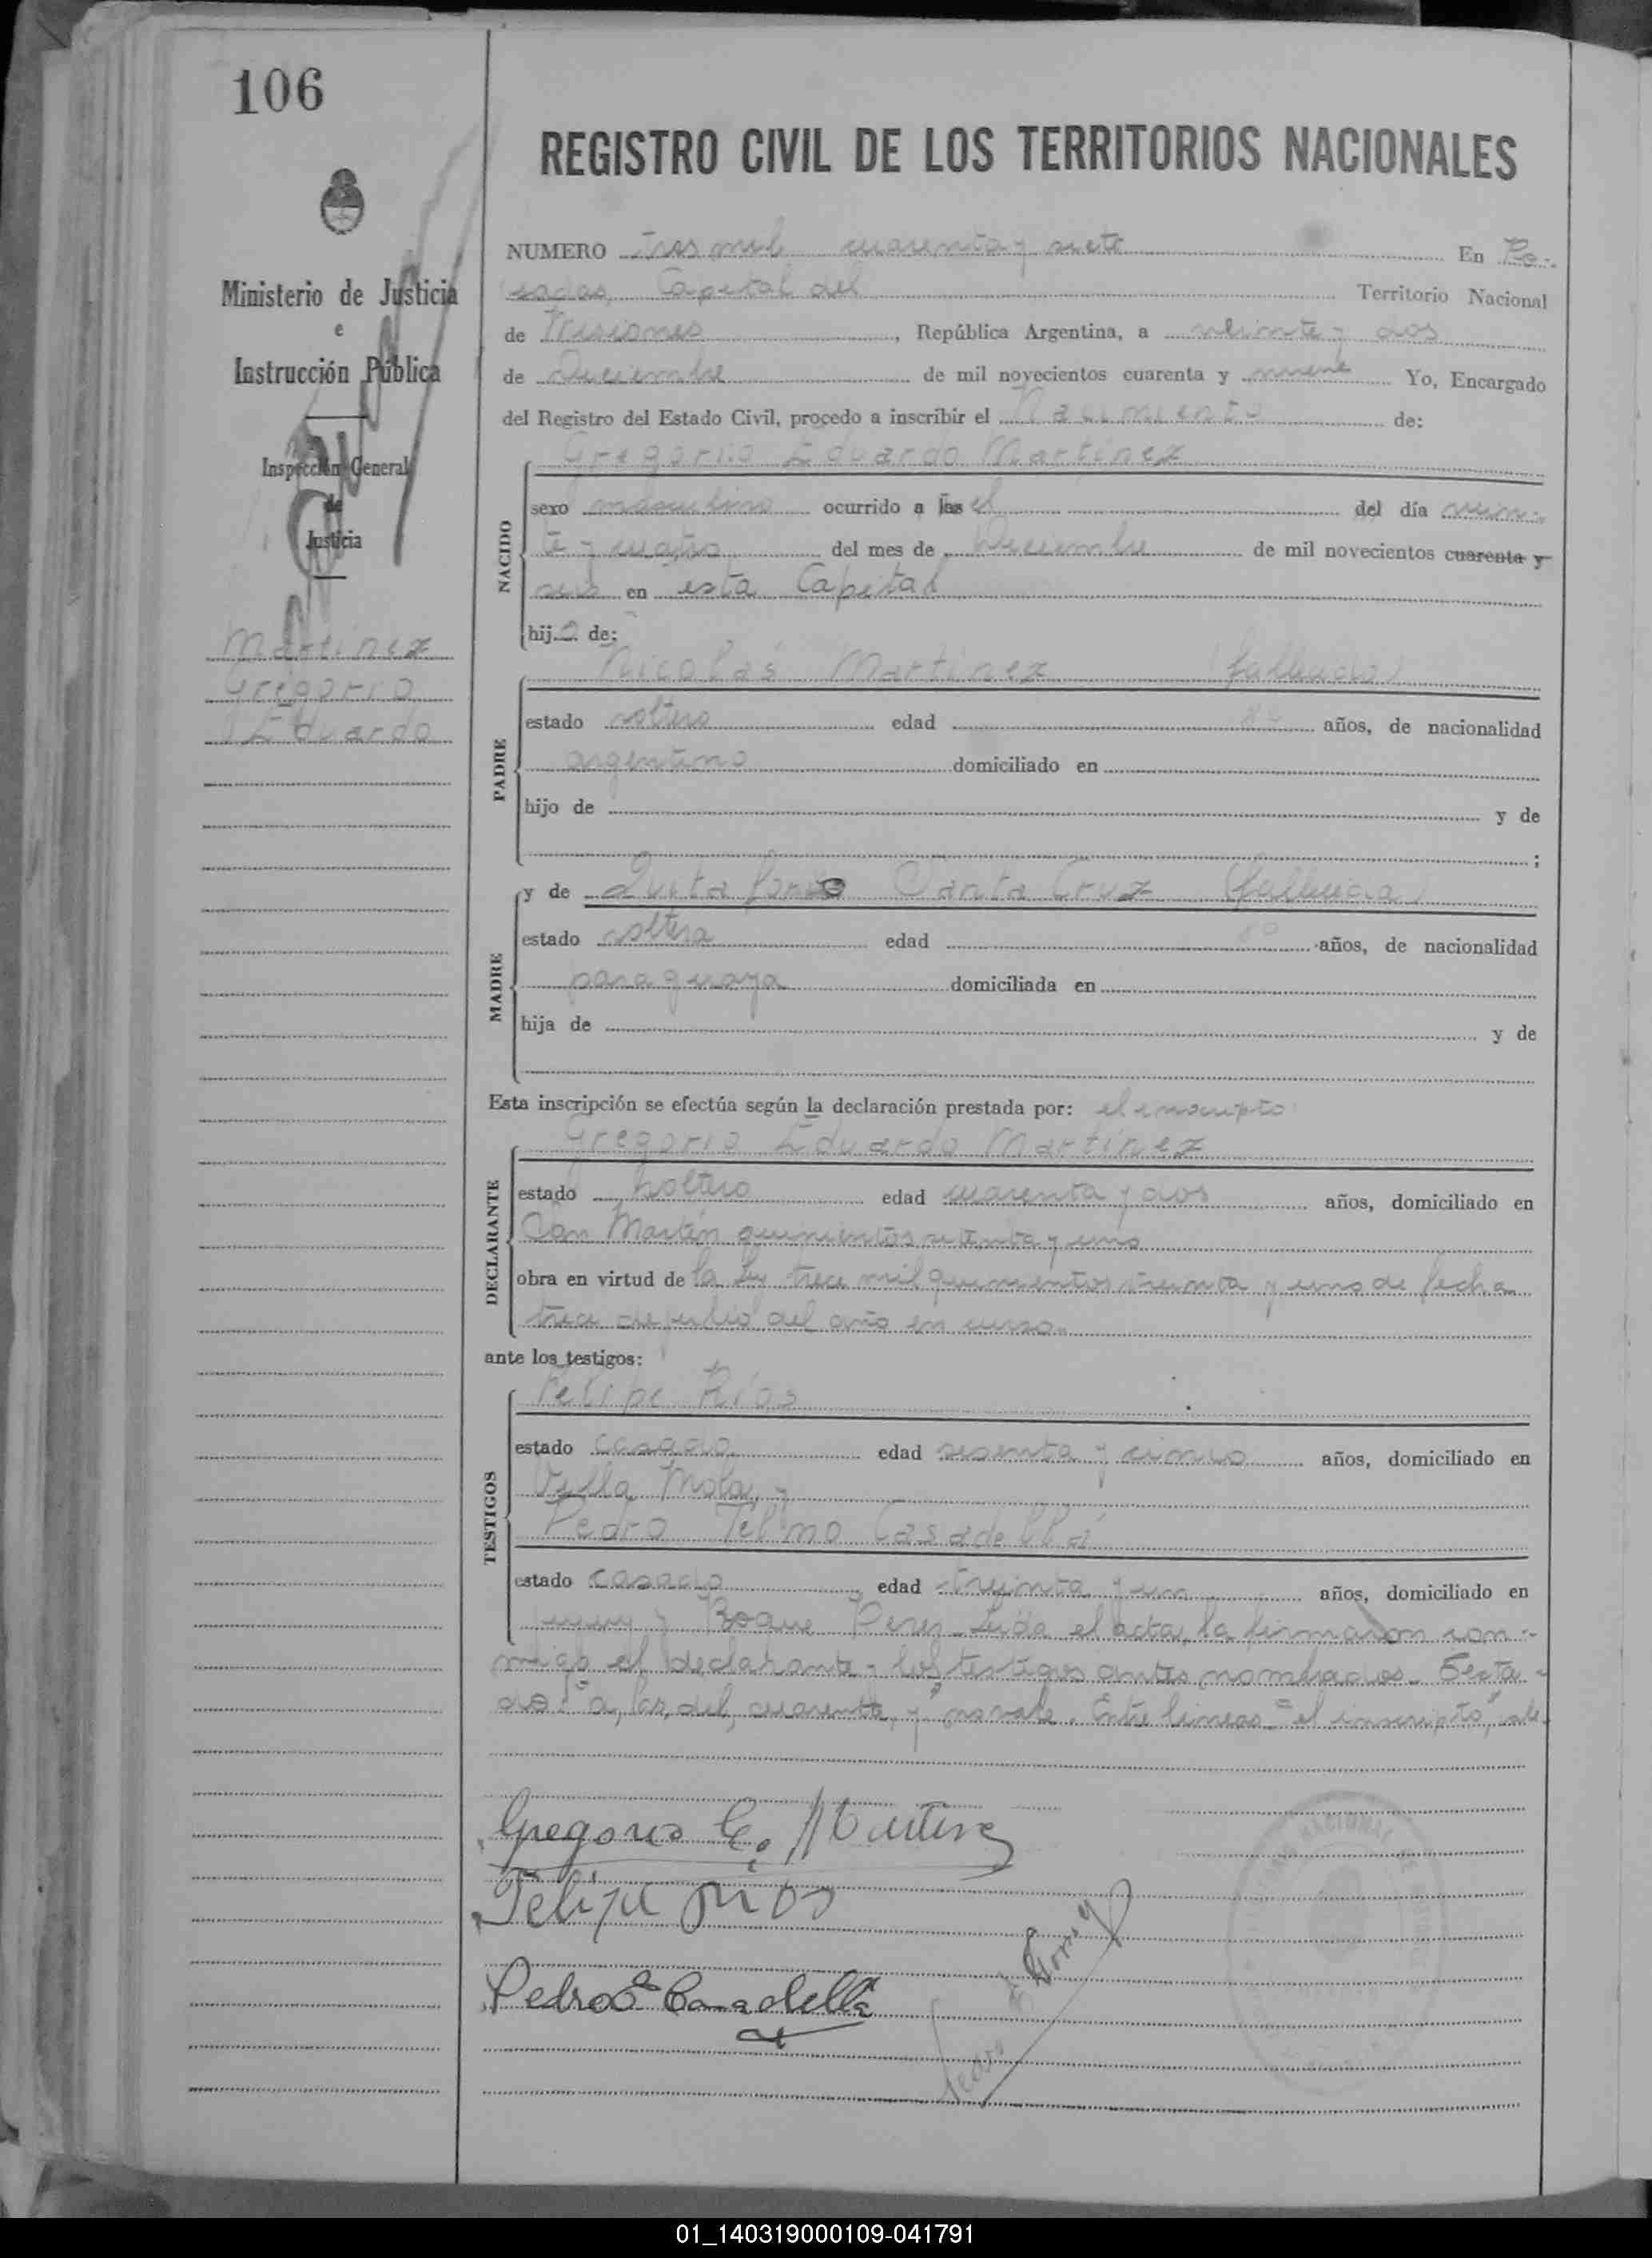 106
REGISTRO CIVIL DE LOS TERRITORIOS NACIONALES
Ministerio de Justicia
e
Instrucción Pública
Inspección General
de
Justicia
Martínez
Gregorio
Eduardo
NUMERO tres mil cuarenta y siete En Po-
sadas, Capital del Territorio Nacional
de Misiones, República Argentina, a veinte y dos
de Diciembre de mil novecientos cuarenta y nueve Yo, Encargado
del Registro del Estado Civil, procedo a inscribir el Nacimiento de:
NACIDO
Gregorio Eduardo Martínez
sexo masculino ocurrido a las el del día vein-
te y cuatro del mes de Diciembre de mil novecientos cuarenta y
seis en esta Capital
hijo de:
PADRE
Nicolás Martínez (fallecido)
estado soltero edad años, de nacionalidad
argentino domiciliado en
hijo de y de
;
MADRE
y de Santa Cruz (fallecida)
estado soltera edad años, de nacionalidad
paraguaya domiciliada en
hija de y de
Esta inscripción se efectúa según la declaración prestada por: el inscripto
DECLARANTE
Gregorio Eduardo Martínez
estado soltero edad cuarenta y dos años, domiciliado en
San Martín quinientos setenta y uno
obra en virtud de la ley trece mil quinientos treinta y uno de fecha
trece de julio del año en curso.
ante los testigos:
TESTIGOS
Felipe Ríos
estado casado edad sesenta y cinco años, domiciliado en
Villa Mola, y
Pedro Telmo Casadellá
estado casado edad treinta y un años, domiciliado en
Jujuy y Roque Perez. Leída el acta, la firmaron con-
migo el declarante y los testigos antes nombrados. Testa-
do: "a, las, del, cuarenta, y" no vale. Entre lineas = "el inscripto", vale.
Gregorio E. Martinez
Felipe Rios
Pedro T. Casadellá
NACIONAL
01_140319000109-041791